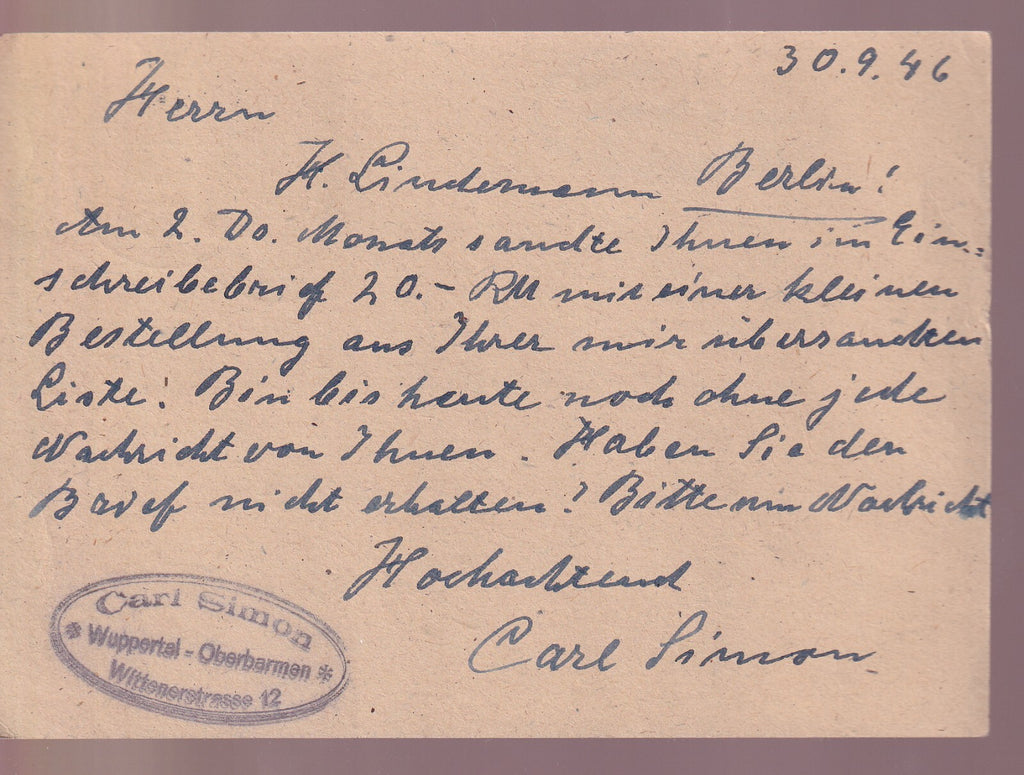 30.9.46
Herrn
H. Lindemann Berlin!
Am 2. Do. Monats sandte Ihnen im Ein=
schreibebrief 20.- RM mit einer kleinen
Bestellung aus Ihrer mir übersandten
Liste! Bin bis heute noch ohne jede
Nachricht von Ihnen. Haben Sie den
Brief nicht erhalten? Bitte um Nachricht
Hochachtend
Carl Simon
Carl Simon
* Wuppertal - Oberbarmen *
Wittenerstrasse 12